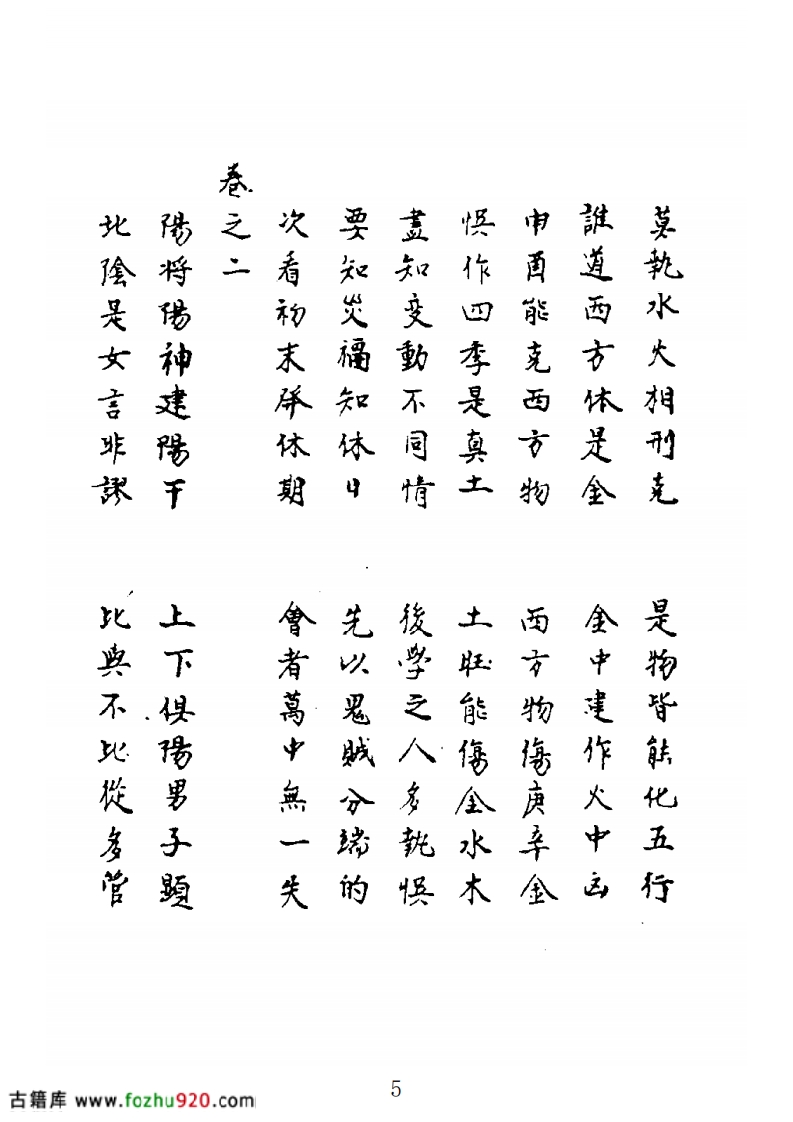 莫執水火相刑克　是物皆能化五行
誰道西方体是金　金中建作火中凶
申酉能克西方物　西方物傷庚辛金
悮作四季是真土　土旺能傷金水木
盡知变動不同情　後學之人多執悮
要知災禍知休日　先以鬼賊分端的
次看初末屏休期　會者萬中無一失
卷之二
陽將陽神建陽干　上下俱陽男子顯
北陰是女言非謬　比與不比從多管
5
古籍库 www.fozhu920.com